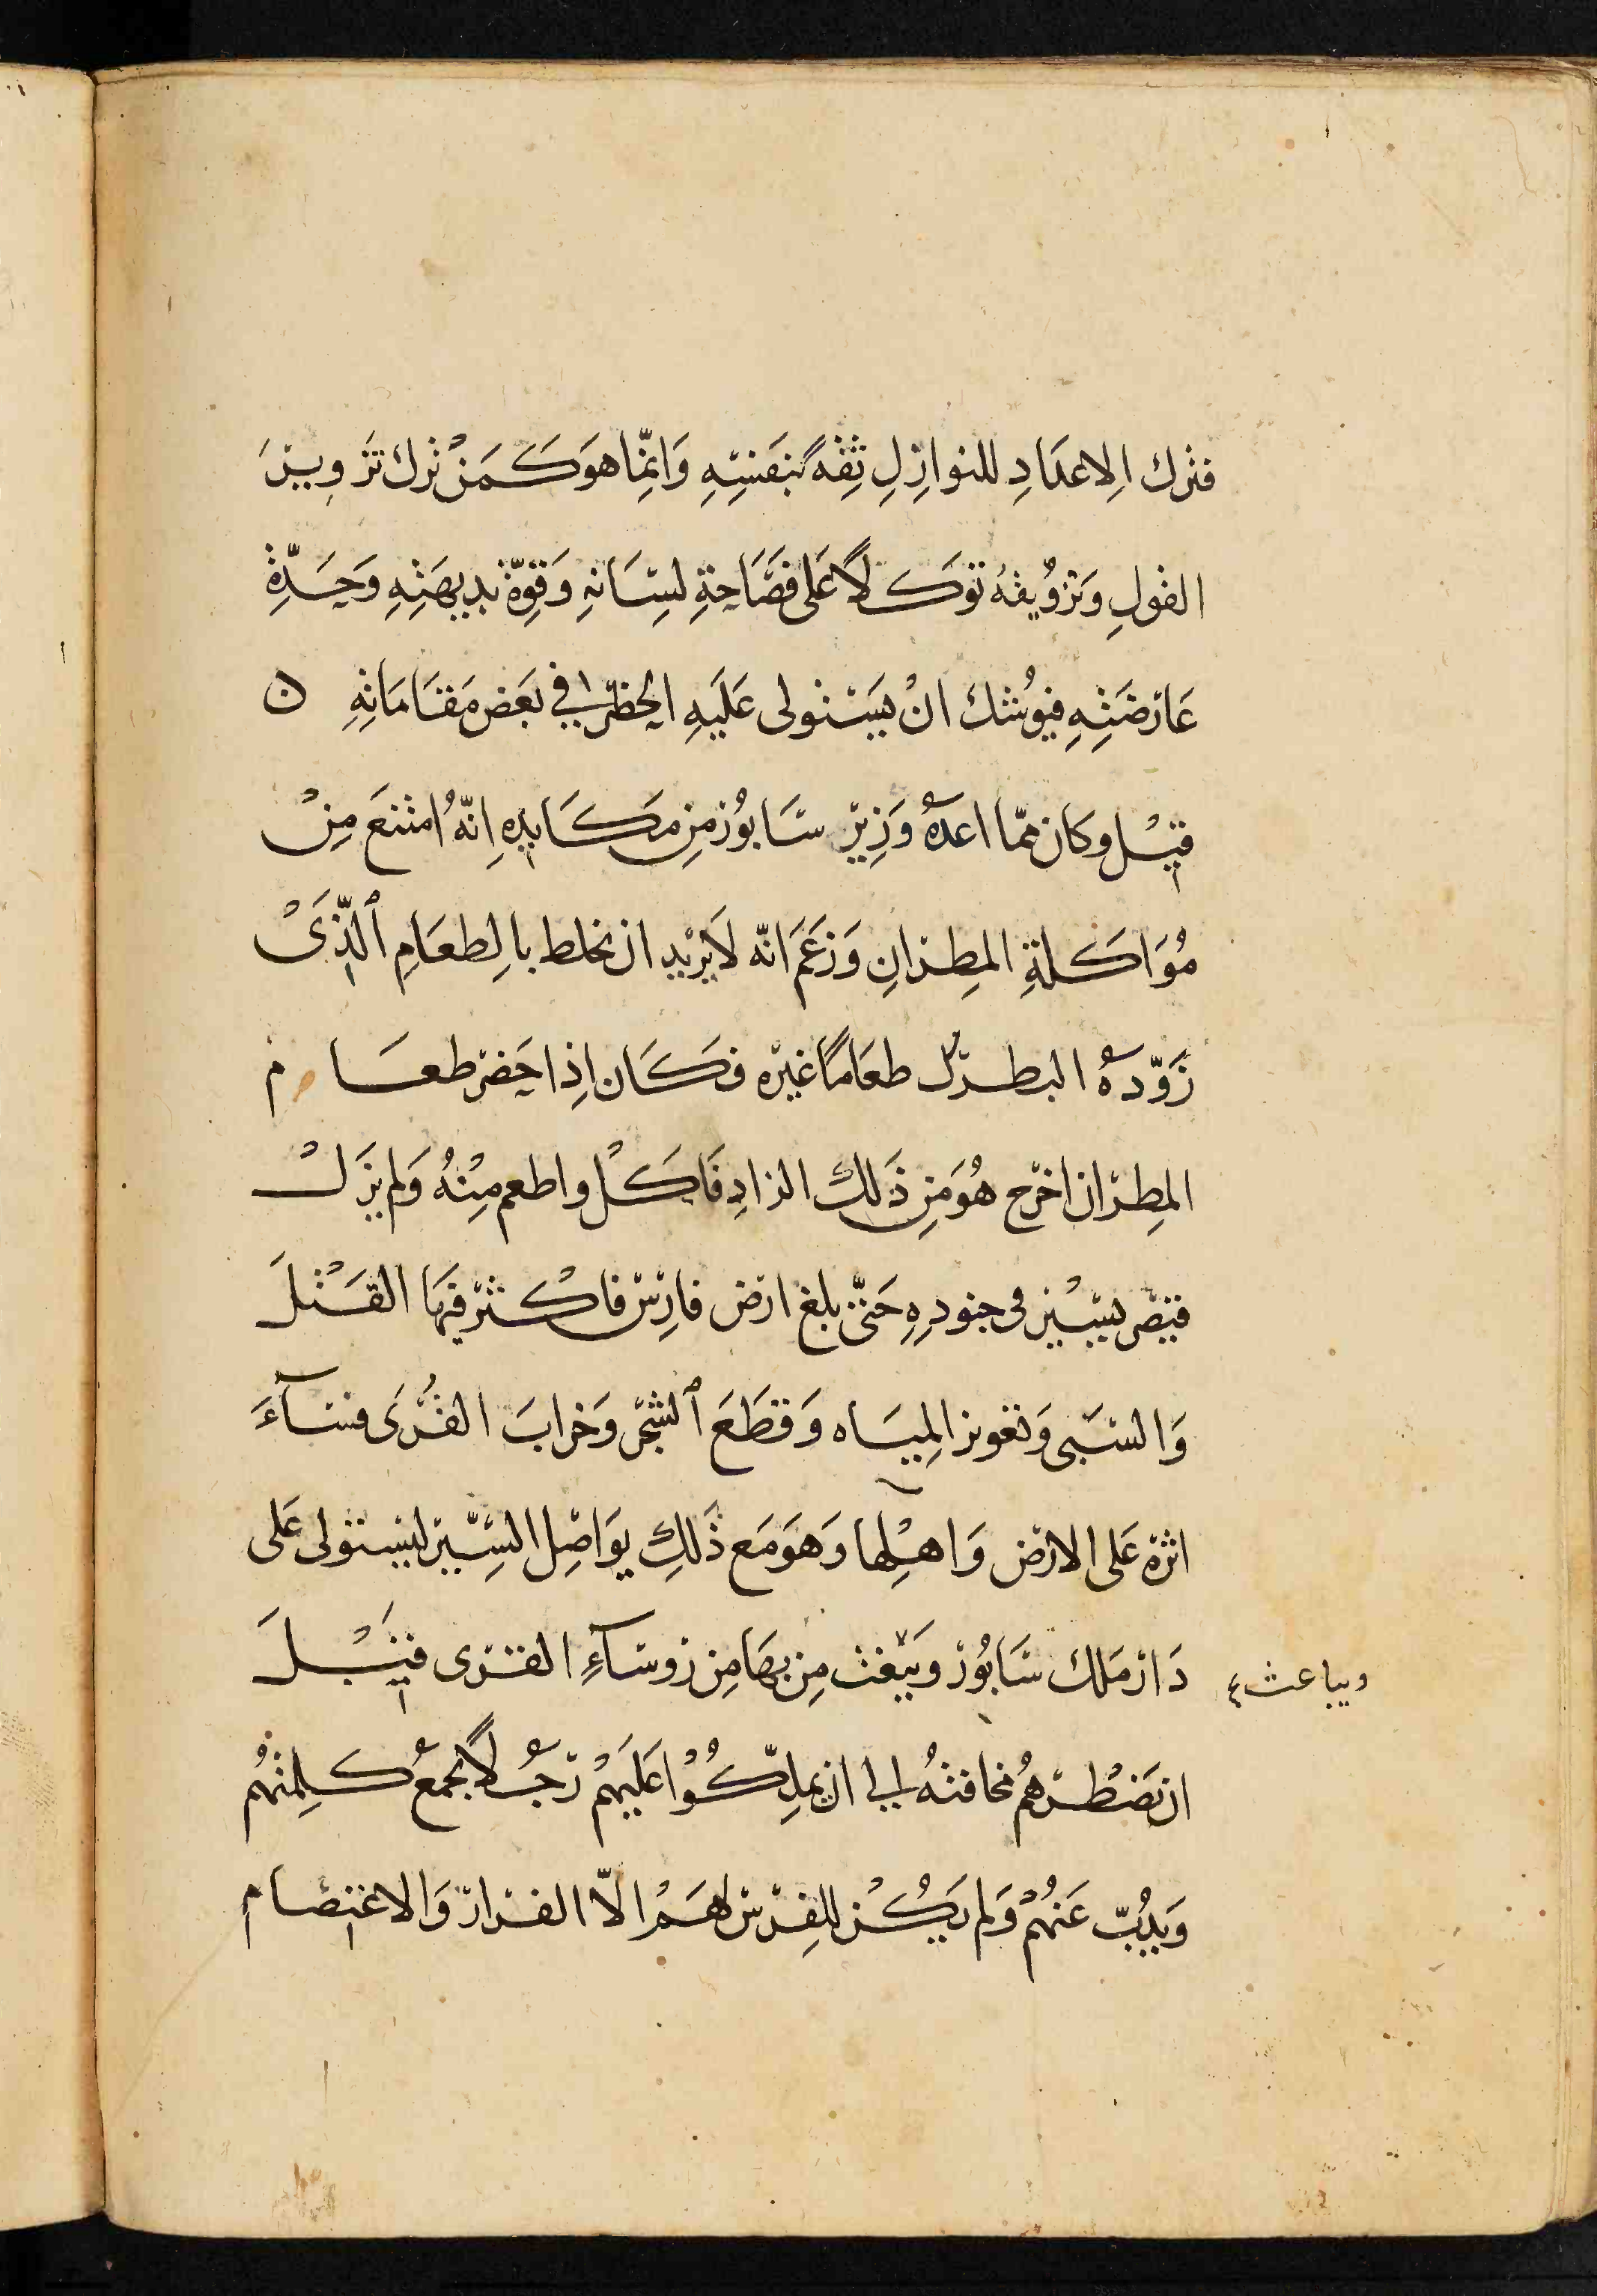 فترك الاعداد للنوازل ثقةً بنفسه وانّما هو كمن ترك تزوير
القول وتزويقه توكلاً على فصاحة لسانه وقوّة بديهته وحدّة
عارضته فيوشك ان يستولى عليه الحصر في بعض مقاماته ن
قيل وكان ممّا اعده وزير سابور من مكايده انّه امتنع من
مواكلة المطران وزعم انّه لا يريد ان يخلط بالطعام الذّى
زوّده البطرك طعاماً غيره فكان اذا حضر طعام
المطران اخرج هو من ذلك الزاد فاكل واطعم منه ولم يزل
قيصر يسير فى جنوده حتّى بلغ ارض فارس فاكثر فيها القتل
والسبى وتغوير المياه وقطع الشجر وخراب القرى فساء
اثره على الارض واهلها وهو مع ذلك يواصل السّير ليستولى على
دار ملك سابور ويبغت من بها من روساء القرى قبل
ويباعث
ان تضطرهم مخافته الى ان يملّكوا عليهم رجلاً يجمع كلمتهم
ويذبّ عنهم ولم يكن للفرس هم الّا الفرار والاعتصام